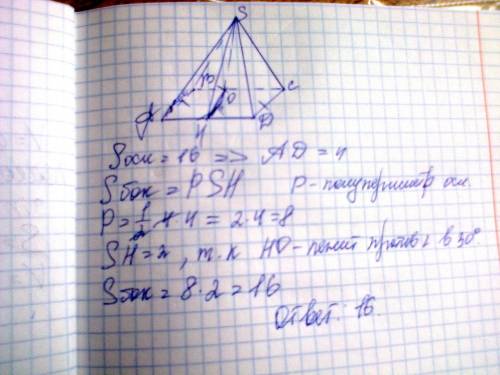 S
B
C
O
A
H
D
Sосн = 16 => AD = 4
Sбок = PSH P - полупериметр осн.
P = 1/2 4·4 = 2·4 = 8
SH = 2, т.к HO - лежит против ∠ в 30°
Sбок = 8·2 = 16
Ответ: 16.